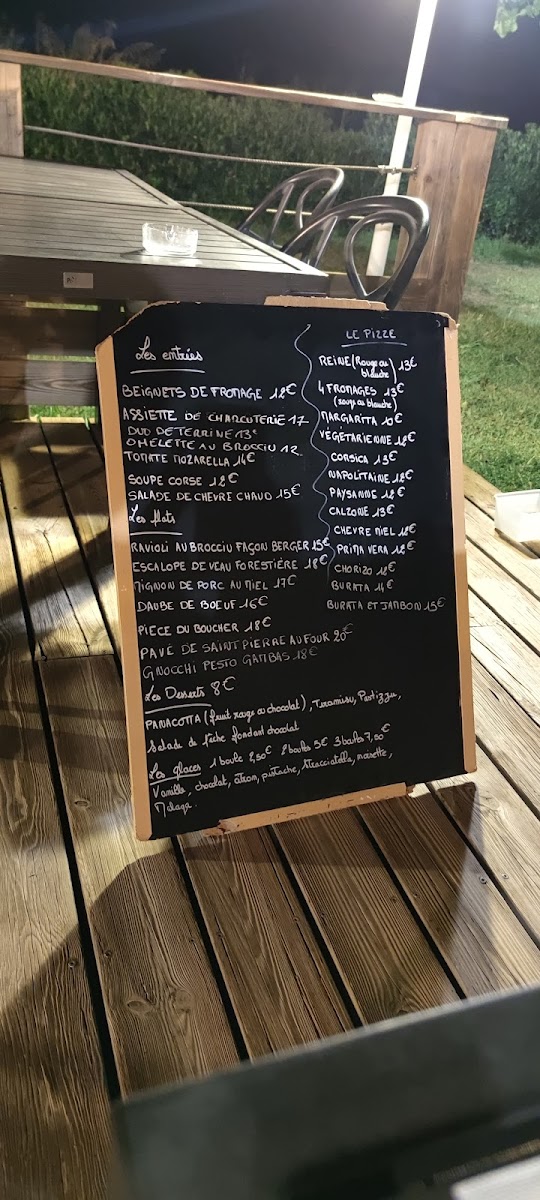 Les entrées
BEIGNETS DE FROMAGE 12€
ASSIETTE DE CHARCUTERIE 17
DUO DE TERRINE 13€
OMELETTE AU BROCCIU 12
TOMATE MOZARELLA 14€
SOUPE CORSE 12€
SALADE DE CHEVRE CHAUD 15€
Les plats
RAVIOLI AU BROCCIU FAÇON BERGER 15€
ESCALOPE DE VEAU FORESTIÈRE 18€
MIGNON DE PORC AU MIEL 17€
DAUBE DE BŒUF 16€
PIECE DU BOUCHER 18€
PAVE DE SAINT PIERRE AU FOUR 20€
GNOCCHI PESTO GAMBAS 18€
Les Desserts 8€
PANACOTTA (fruit rouge ou chocolat), Tiramisu, Pastizzu,
Salade de Pêche fondant chocolat
Les glaces 1 boule 2,50€ 2 boules 5€ 3 boules 7,50€
Vanille, chocolat, citron, pistache, stracciatella, noisette,
Malaga.
LE PIZZE
REINE (Rouge ou blanche) 13€
4 FROMAGES 13€
(rouge ou blanche)
MARGARITA 10€
VÉGÉTARIENNE 12€
CORSICA 13€
NAPOLITAINE 12€
PAYSANNE 12€
CALZONE 13€
CHEVRE MIEL 12€
PRIMA VERA 12€
CHORIZO 12€
BURATA 14€
BURATA ET JAMBON 15€